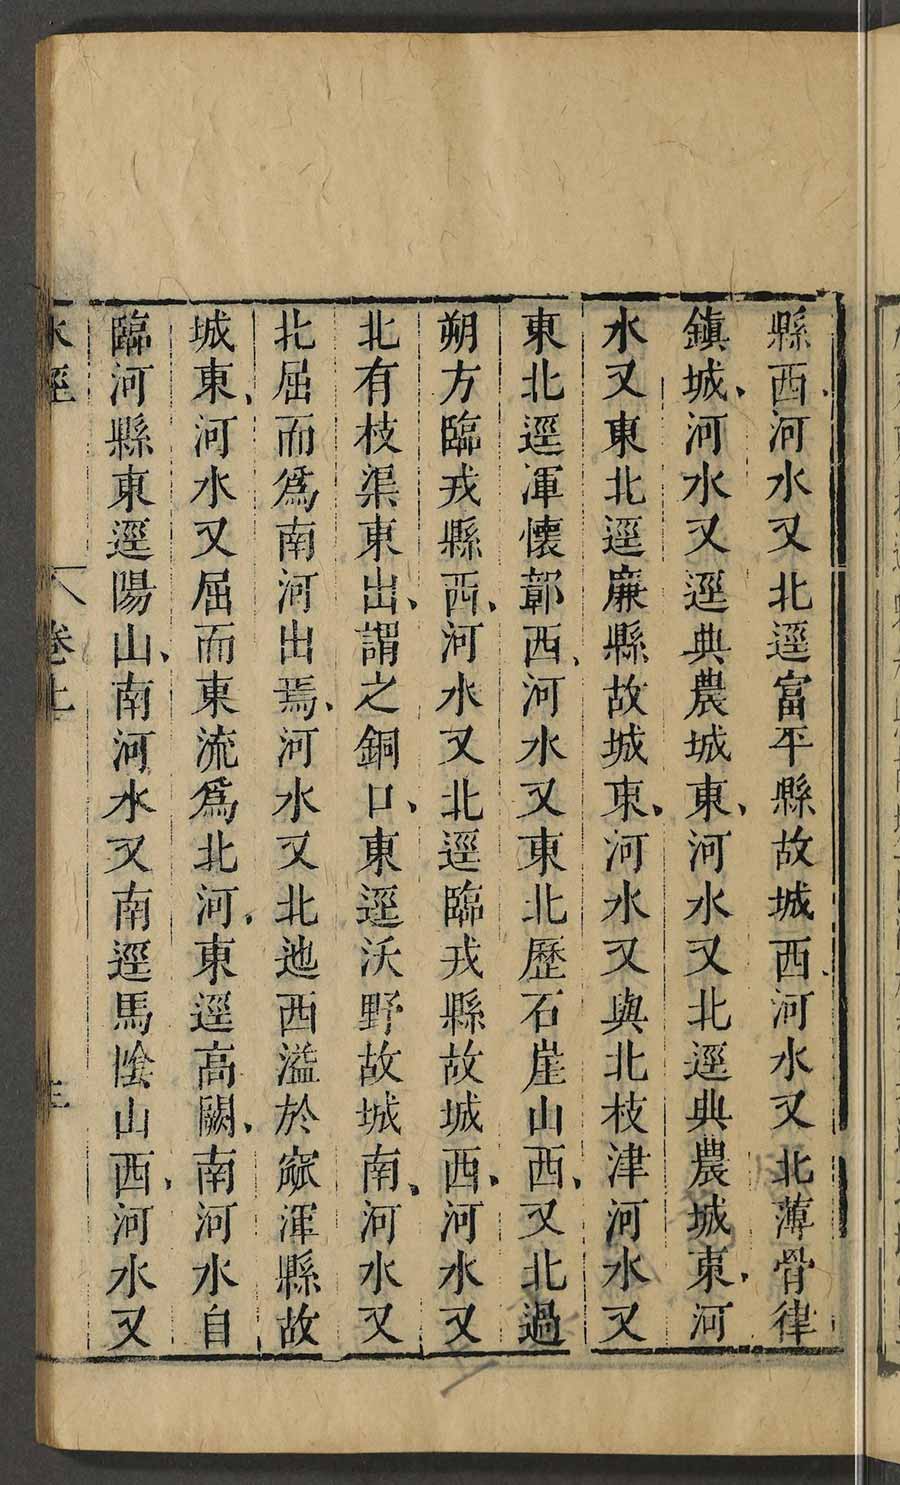 縣西河水又北逕富平縣故城西河水又北薄骨律
鎮城河水又逕典農城東河水又北逕典農城東河
水又東北逕廉縣故城東河水又與北枝津河水又
東北逕渾懷鄣西河水又東北歷石崖山西又北過
朔方臨戎縣西河水又北逕臨戎縣故城西河水又
北有枝渠東出謂之銅口東逕沃野故城南河水又
北屈而爲南河出焉河水又北迆西溢於窳渾縣故
城東河水又屈而東流爲北河東逕高闕南河水自
臨河縣東逕陽山南河水又南逕馬陰山西河水又
水經 卷上 三